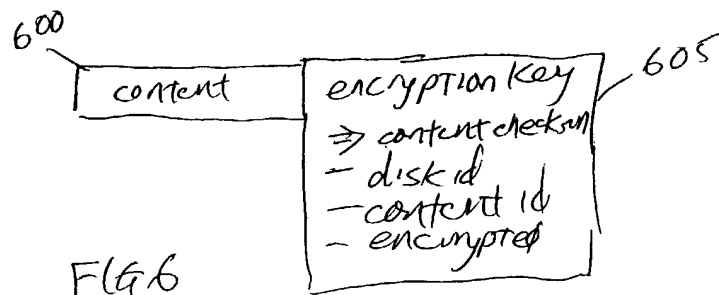 600
605
content
encryption key
⇒ content checksum
- disk id
- content id
- encrypted
FIG 6